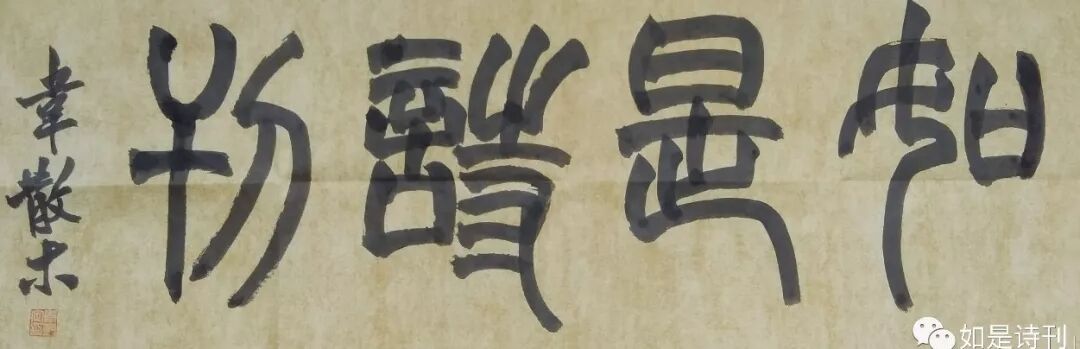 如是詩刊
韋散木
如是诗刊